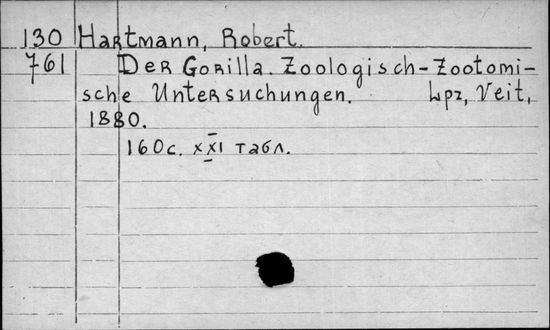 130 Hartmann, Robert.
761 Der Gorilla. Zoologisch-Zootomi-
sche Untersuchungen. Lpz, Veit,
1880.
160с. XXI табл.